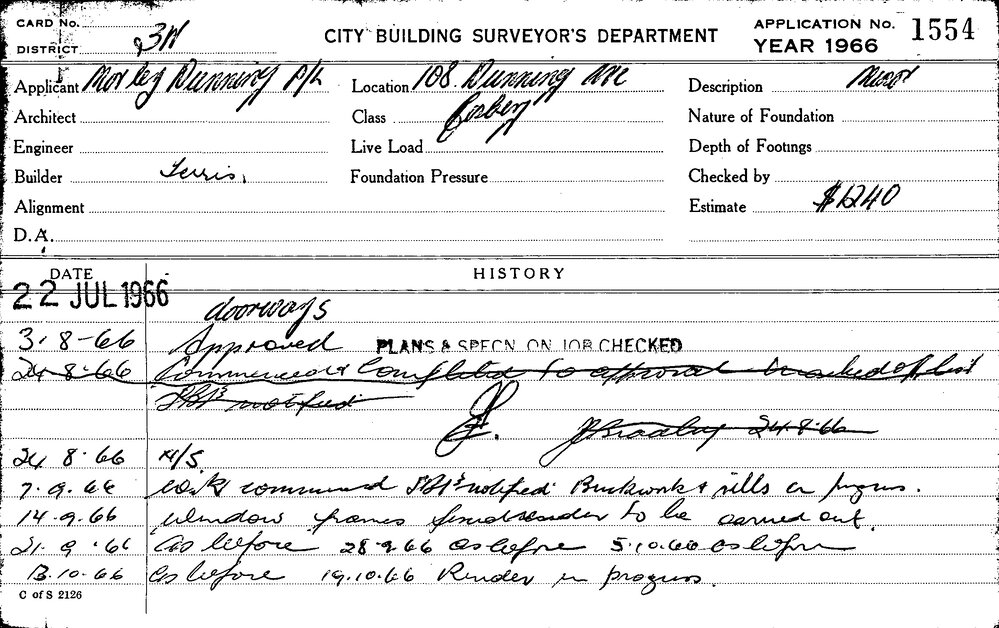 CARD No.
DISTRICT 3N
CITY BUILDING SURVEYOR'S DEPARTMENT
APPLICATION No. 1554
YEAR 1966
Applicant Morley Dunning P/L
Location 108 Dunning Ave
Description
Architect
Class Rosbery
Nature of Foundation
Engineer
Live Load
Depth of Footings
Builder Ferris,
Foundation Pressure
Checked by
Alignment
Estimate $1240
D.A.
DATE
HISTORY
22 JUL 1966
doorways
3.8-66 Approved PLANS & SPECN. ON JOB CHECKED
24.8.66 Commenced & Completed to approval marked off list
notified
J Bradley 24.8.66
24 8.66 N/S
7.9.66 Work commenced notified Brickwork & sills in progress.
14.9.66 Window frames render to be carried out.
21.9.66 As before 28.9.66 as before 5.10.66 as before
13.10.66 As before 19.10.66 Render in progress.
C of S 2126